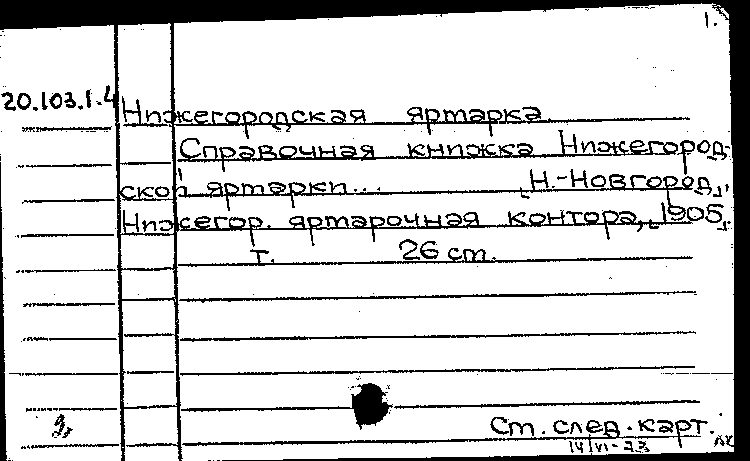 1.
20.103.1.4 Нижегородская ярмарка.
Справочная книжка Нижегород-
ской ярмарки... [Н.-Новгород],
Нижегор. ярмарочная контора, [1905].
т. 26 см.
См. след. карт.
14/VI-73